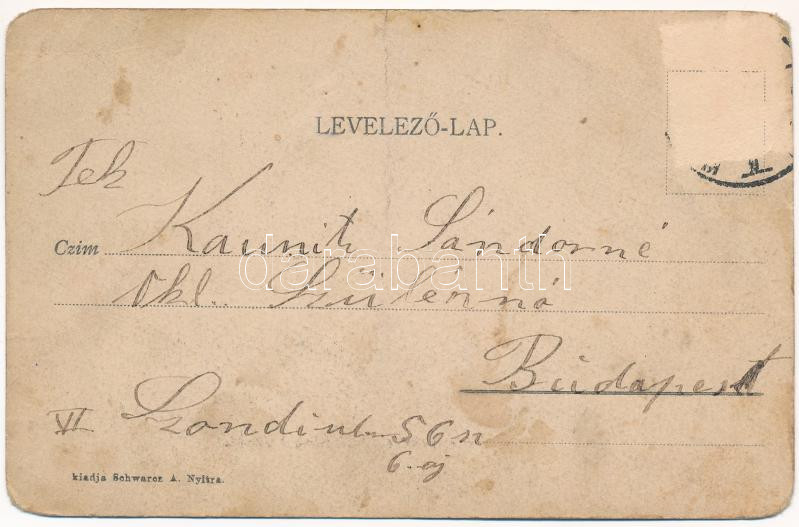 LEVELEZŐ-LAP.
Tek
Czim Kaunitz Sándorné
Okl. Szülésznő
Budapest
VI Szondi ut 56 sz
6. aj
kiadja Schwarcz A. Nyitra.
darabanth